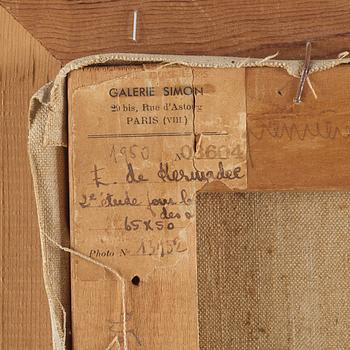 GALERIE SIMON
29 bis, Rue d'Astorg
PARIS (VIII)
1930 N 03604
E. de Kermadec
2e étude pour
des
65x50
Photo No 13132